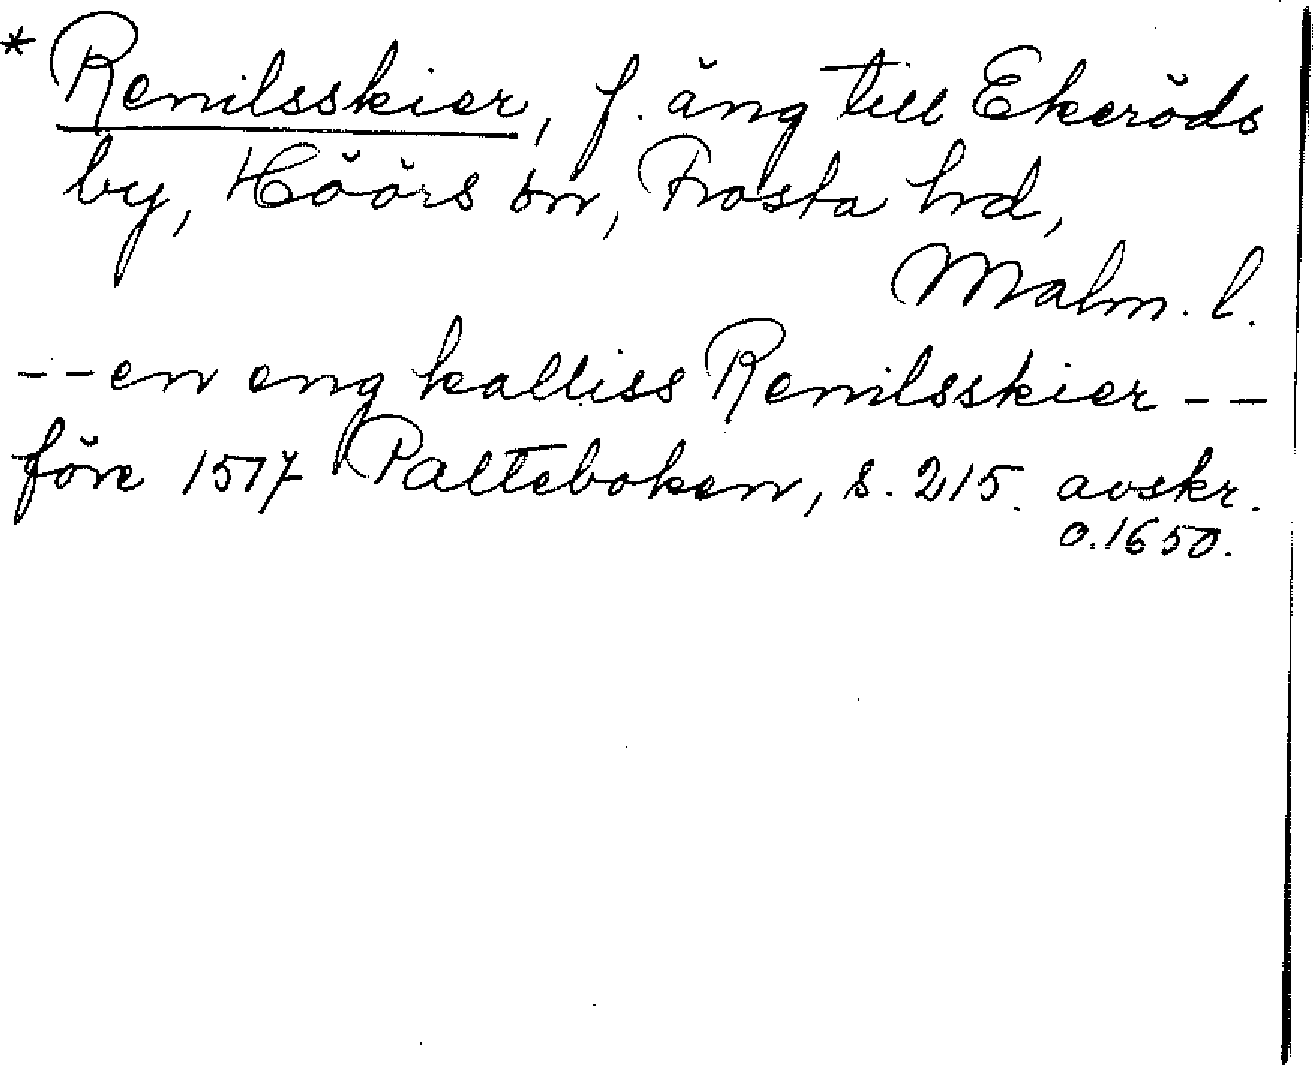 * Remilsskier, f. äng till Ekeröds
by, Höörs sn, Frosta hd,
Malm. l.
-- en eng kalliss Remilsskier --
före 1517 Palteboken, s. 215. avskr.
o. 1650.